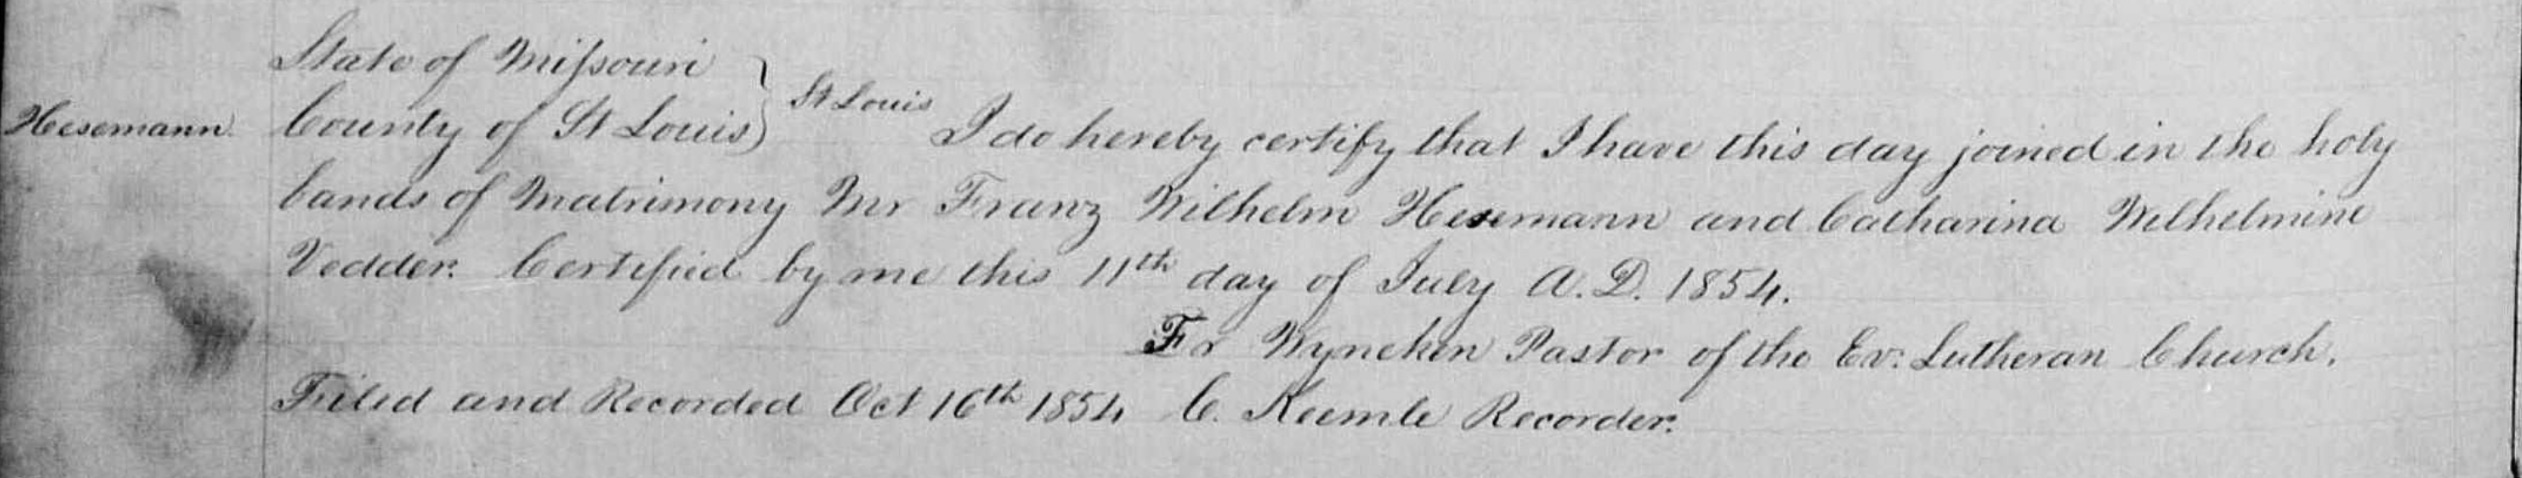 State of Missouri
Hesemann County of St Louis } St Louis I do hereby certify that I have this day joined in the holy
bands of Matrimony Mr Franz Wilhelm Hesemann and Catharina Wilhelmine
Vedder. Certified by me this 11th day of July A. D. 1854.
Fr Wyneken Pastor of the Ev: Lutheran Church.
Filed and Recorded Oct 16th 1854 C. Keemle Recorder.